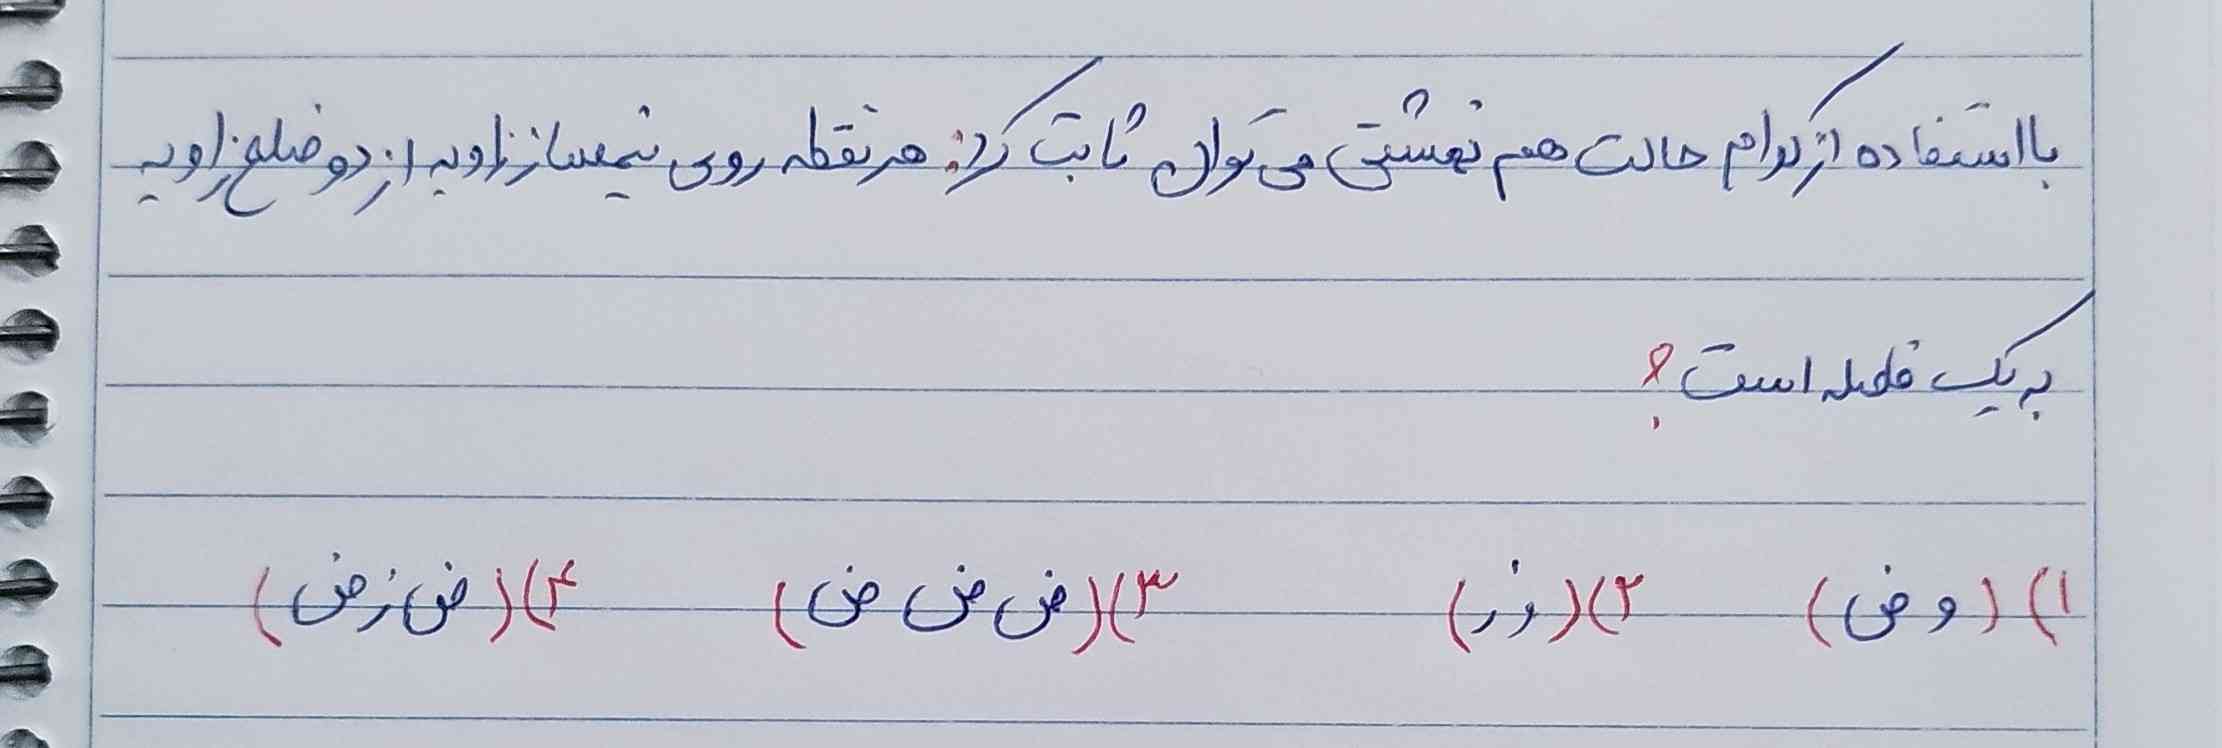 با استفاده از کدام حالت هم نهشتی می توان ثابت کرد: هر نقطه روی نیمساز زاویه از دو ضلع زاویه
به یک فاصله است؟
۱) (و ض) ۲) (وز) ۳) (ض ض ض) ۴) (ض ز ض)